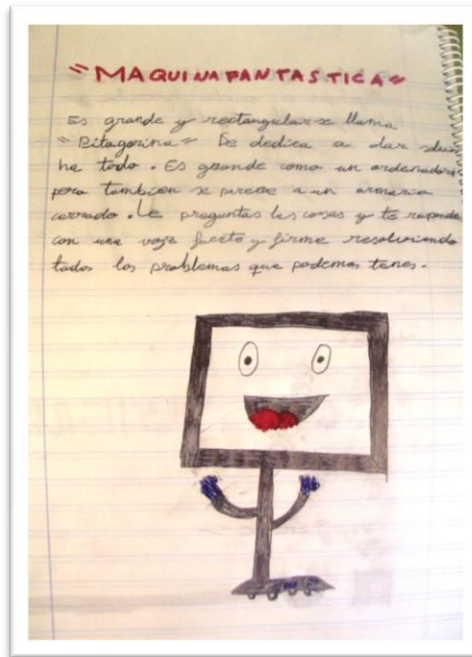 "MAQUINA FANTASTICA"
Es grande y rectangular se llama
"Pitagorina" Se dedica a dar
ha todo. Es grande como un ordenador
pero tambien se parece a un armario
cerrado. Le preguntas las cosas y te responde
con una voz fuerte y firme resolviendo
todos los problemas que podemos tener.